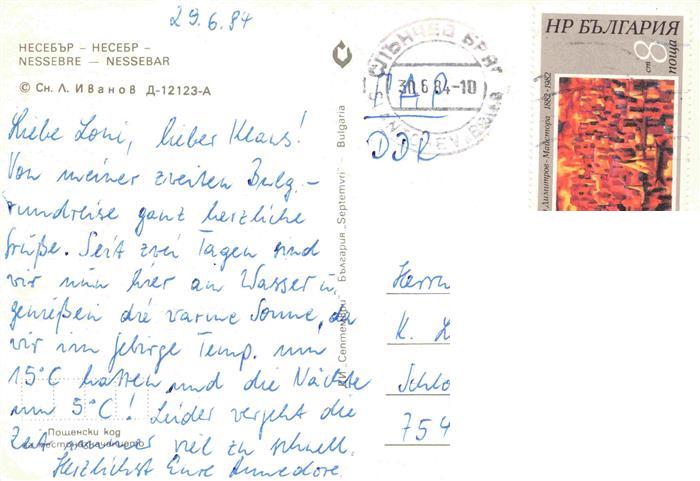 29.6.84
НЕСЕБЪР – НЕСЕБР –
NESSEBRE – NESSEBAR
© Сн. Л. Иванов Д-12123-А
Liebe Loni, lieber Klaus!
Von meiner zweiten Bulg.-
rundreise ganz herzliche
Grüße. Seit zwei Tagen sind
wir nun hier am Wasser u.
genießen die warme Sonne, da
wir im Gebirge Temp. um
15°C hatten und die Nächte
um 5°C! Leider vergeht die
Zeit immer viel zu schnell.
Herzlichst Eure Annedore.
Пощенски код
на местоназначението
ДИ „Септември" България „Septemvri" Bulgaria
СЛЪНЧЕВ БРЯГ
30.6.84-10
ПАР
DDR
Herrn
K. L
Schlo
754
НР БЪЛГАРИЯ
8 ст поща
Димитров-Майстора 1882-1982